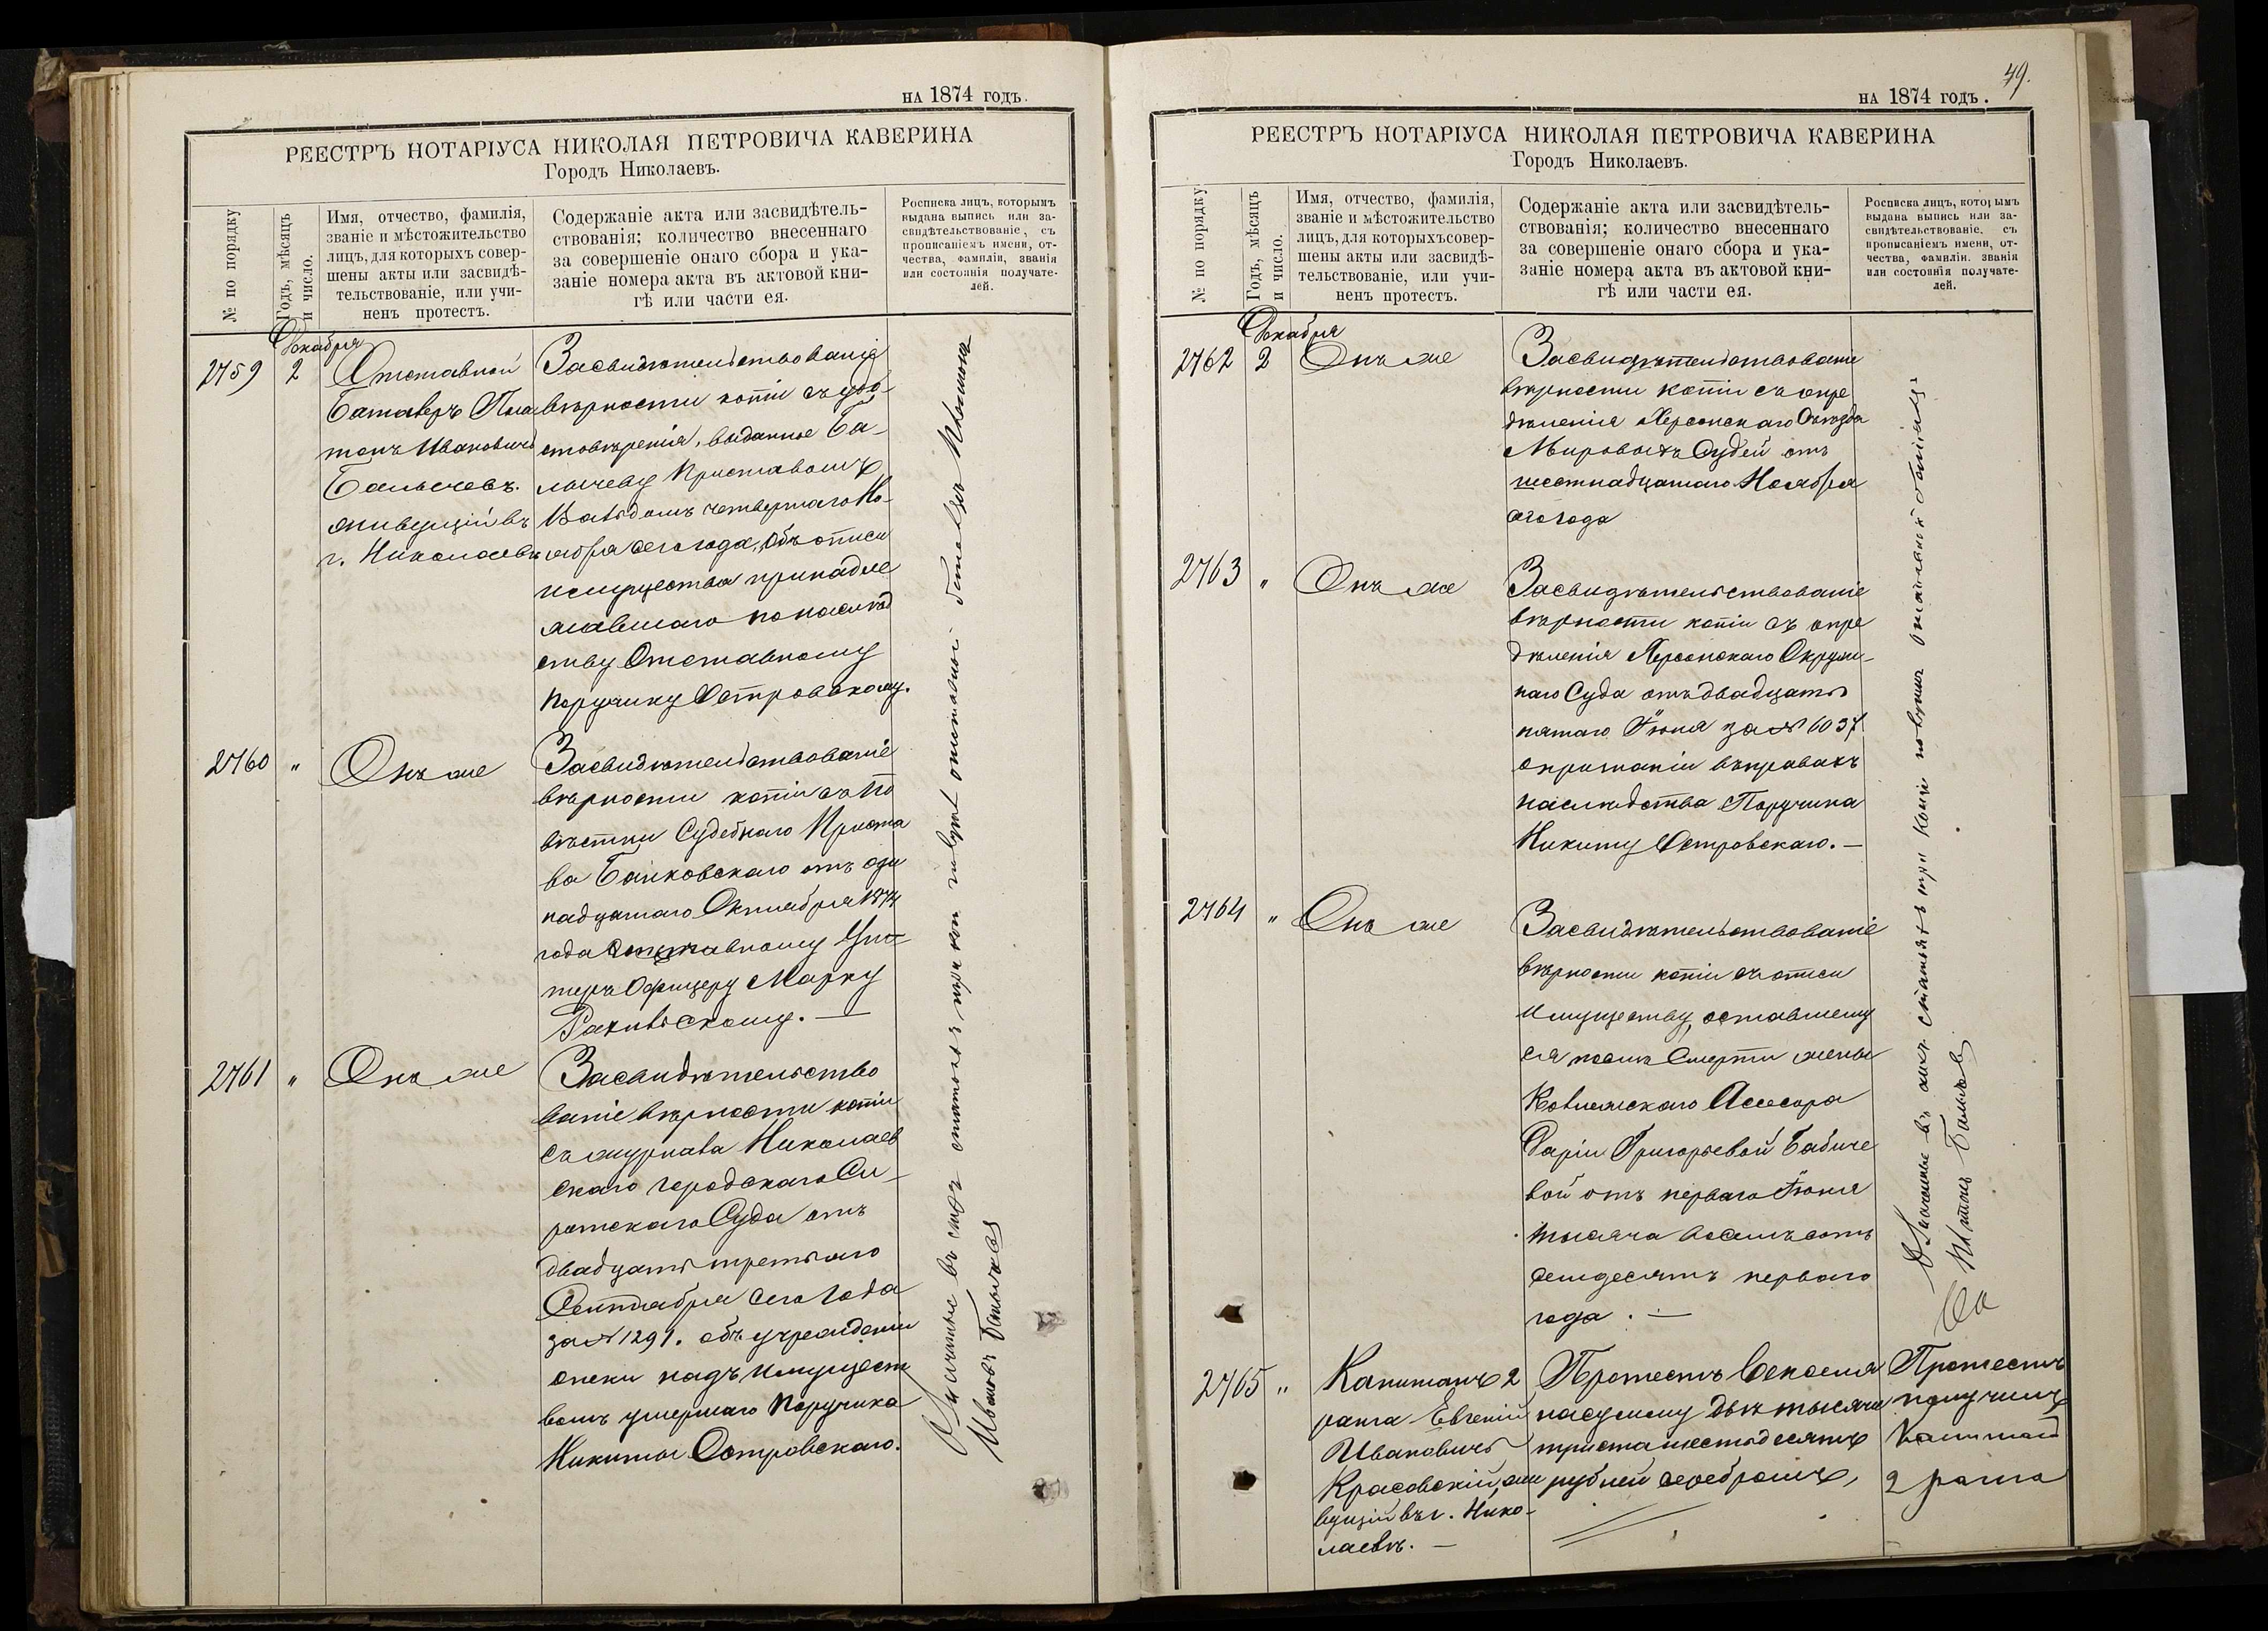 НА 1874 ГОДЪ.
РЕЕСТРЪ НОТАРІУСА НИКОЛАЯ ПЕТРОВИЧА КАВЕРИНА
Городъ Николаевъ.
№ по порядку
Годъ, мѣсяцъ
и число.
Имя, отчество, фамилія,
званіе и мѣстожительство
лицъ, для которыхъ совер-
шены акты или засвидѣ-
тельствованіе, или учи-
ненъ протестъ.
Содержаніе акта или засвидѣтель-
ствованія; количество внесеннаго
за совершеніе онаго сбора и ука-
заніе номера акта въ актовой кни-
гѣ или части ея.
Росписка лицъ, которымъ
выдана выпись или за-
свидѣтельствованіе, съ
прописаніемъ имени, от-
чества, фамиліи, званія
или состоянія получате-
лей.
Декабря
2759
2
Отставной
Баталеръ Пла
тонъ Ивановичъ
Балычевъ.
живущій въ
г. Николаевѣ
Засвидѣтельствованіе
вѣрности копіи съ удо-
стовѣренія, выданное Ба-
лычеву Приставомъ
четвертаго Но-
ября сего года, объ описи
имущества принадле
жавшаго по наслѣд
ству Отставному
Поручику Островскому.
2760
"
Онъ же
Засвидѣтельствованіе
вѣрности копіи съ по
вѣстки Судебнаго Приста
ва отъ оди
надцатаго Октября 1874
года отставному Ун
теръ Офицеру Марку
2761
"
Онъ же
Засвидѣтельство
ваніе вѣрности копіи
съ журнала Николаев
скаго городскаго Си-
ротскаго Суда отъ
двадцать третьяго
Сентября сего года
за № 1291. объ учрежденіи
опеки надъ имущест
вомъ умершаго Поручика
Никиты Островскаго.
въ статьяхъ три копіи отставной Баталеръ Платонъ
Ивановъ Балычевъ
49.
НА 1874 ГОДЪ.
РЕЕСТРЪ НОТАРІУСА НИКОЛАЯ ПЕТРОВИЧА КАВЕРИНА
Городъ Николаевъ.
№ по порядку
Годъ, мѣсяцъ
и число.
Имя, отчество, фамилія,
званіе и мѣстожительство
лицъ, для которыхъ совер-
шены акты или засвидѣ-
тельствованіе, или учи-
ненъ протестъ.
Содержаніе акта или засвидѣтель-
ствованія; количество внесеннаго
за совершеніе онаго сбора и ука-
заніе номера акта въ актовой кни-
гѣ или части ея.
Росписка лицъ, которымъ
выдана выпись или за-
свидѣтельствованіе, съ
прописаніемъ имени, от-
чества, фамиліи, званія
или состоянія получате-
лей.
Декабря
2762
2
Онъ же
Засвидѣтельствованіе
вѣрности копіи съ опре
дѣленія Херсонскаго Съѣзда
Мировыхъ Судей отъ
шестнадцатаго Ноября
сего года
2763
"
Онъ же
Засвидѣтельствованіе
вѣрности копіи съ опре
дѣленія Херсонскаго Окруж-
наго Суда отъ двадцать
пятаго Іюня за № 6037
о признаніи въ правахъ
наслѣдства Поручика
Никиту Островскаго. —
2764
"
Онъ же
Засвидѣтельствованіе
вѣрности копіи съ описи
имуществу, оставшему
ся послѣ смерти жены
Коллежскаго Асессора
Даріи Григорьевой Бабиче
вой отъ перваго Іюня
тысяча восемьсотъ
семдесятъ перваго
года. —
въ статьяхъ три копіи получилъ
Платонъ Балычевъ
2765
"
Капитанъ 2
ранга Евгеній
Ивановичъ
Красовскій, жи
вущій въ г. Нико-
лаевѣ. —
Протестъ векселя
на сумму двѣ тысячи
триста шестьдесятъ
рублей серебромъ,
Протестъ
получилъ
Капитанъ
2 ранга